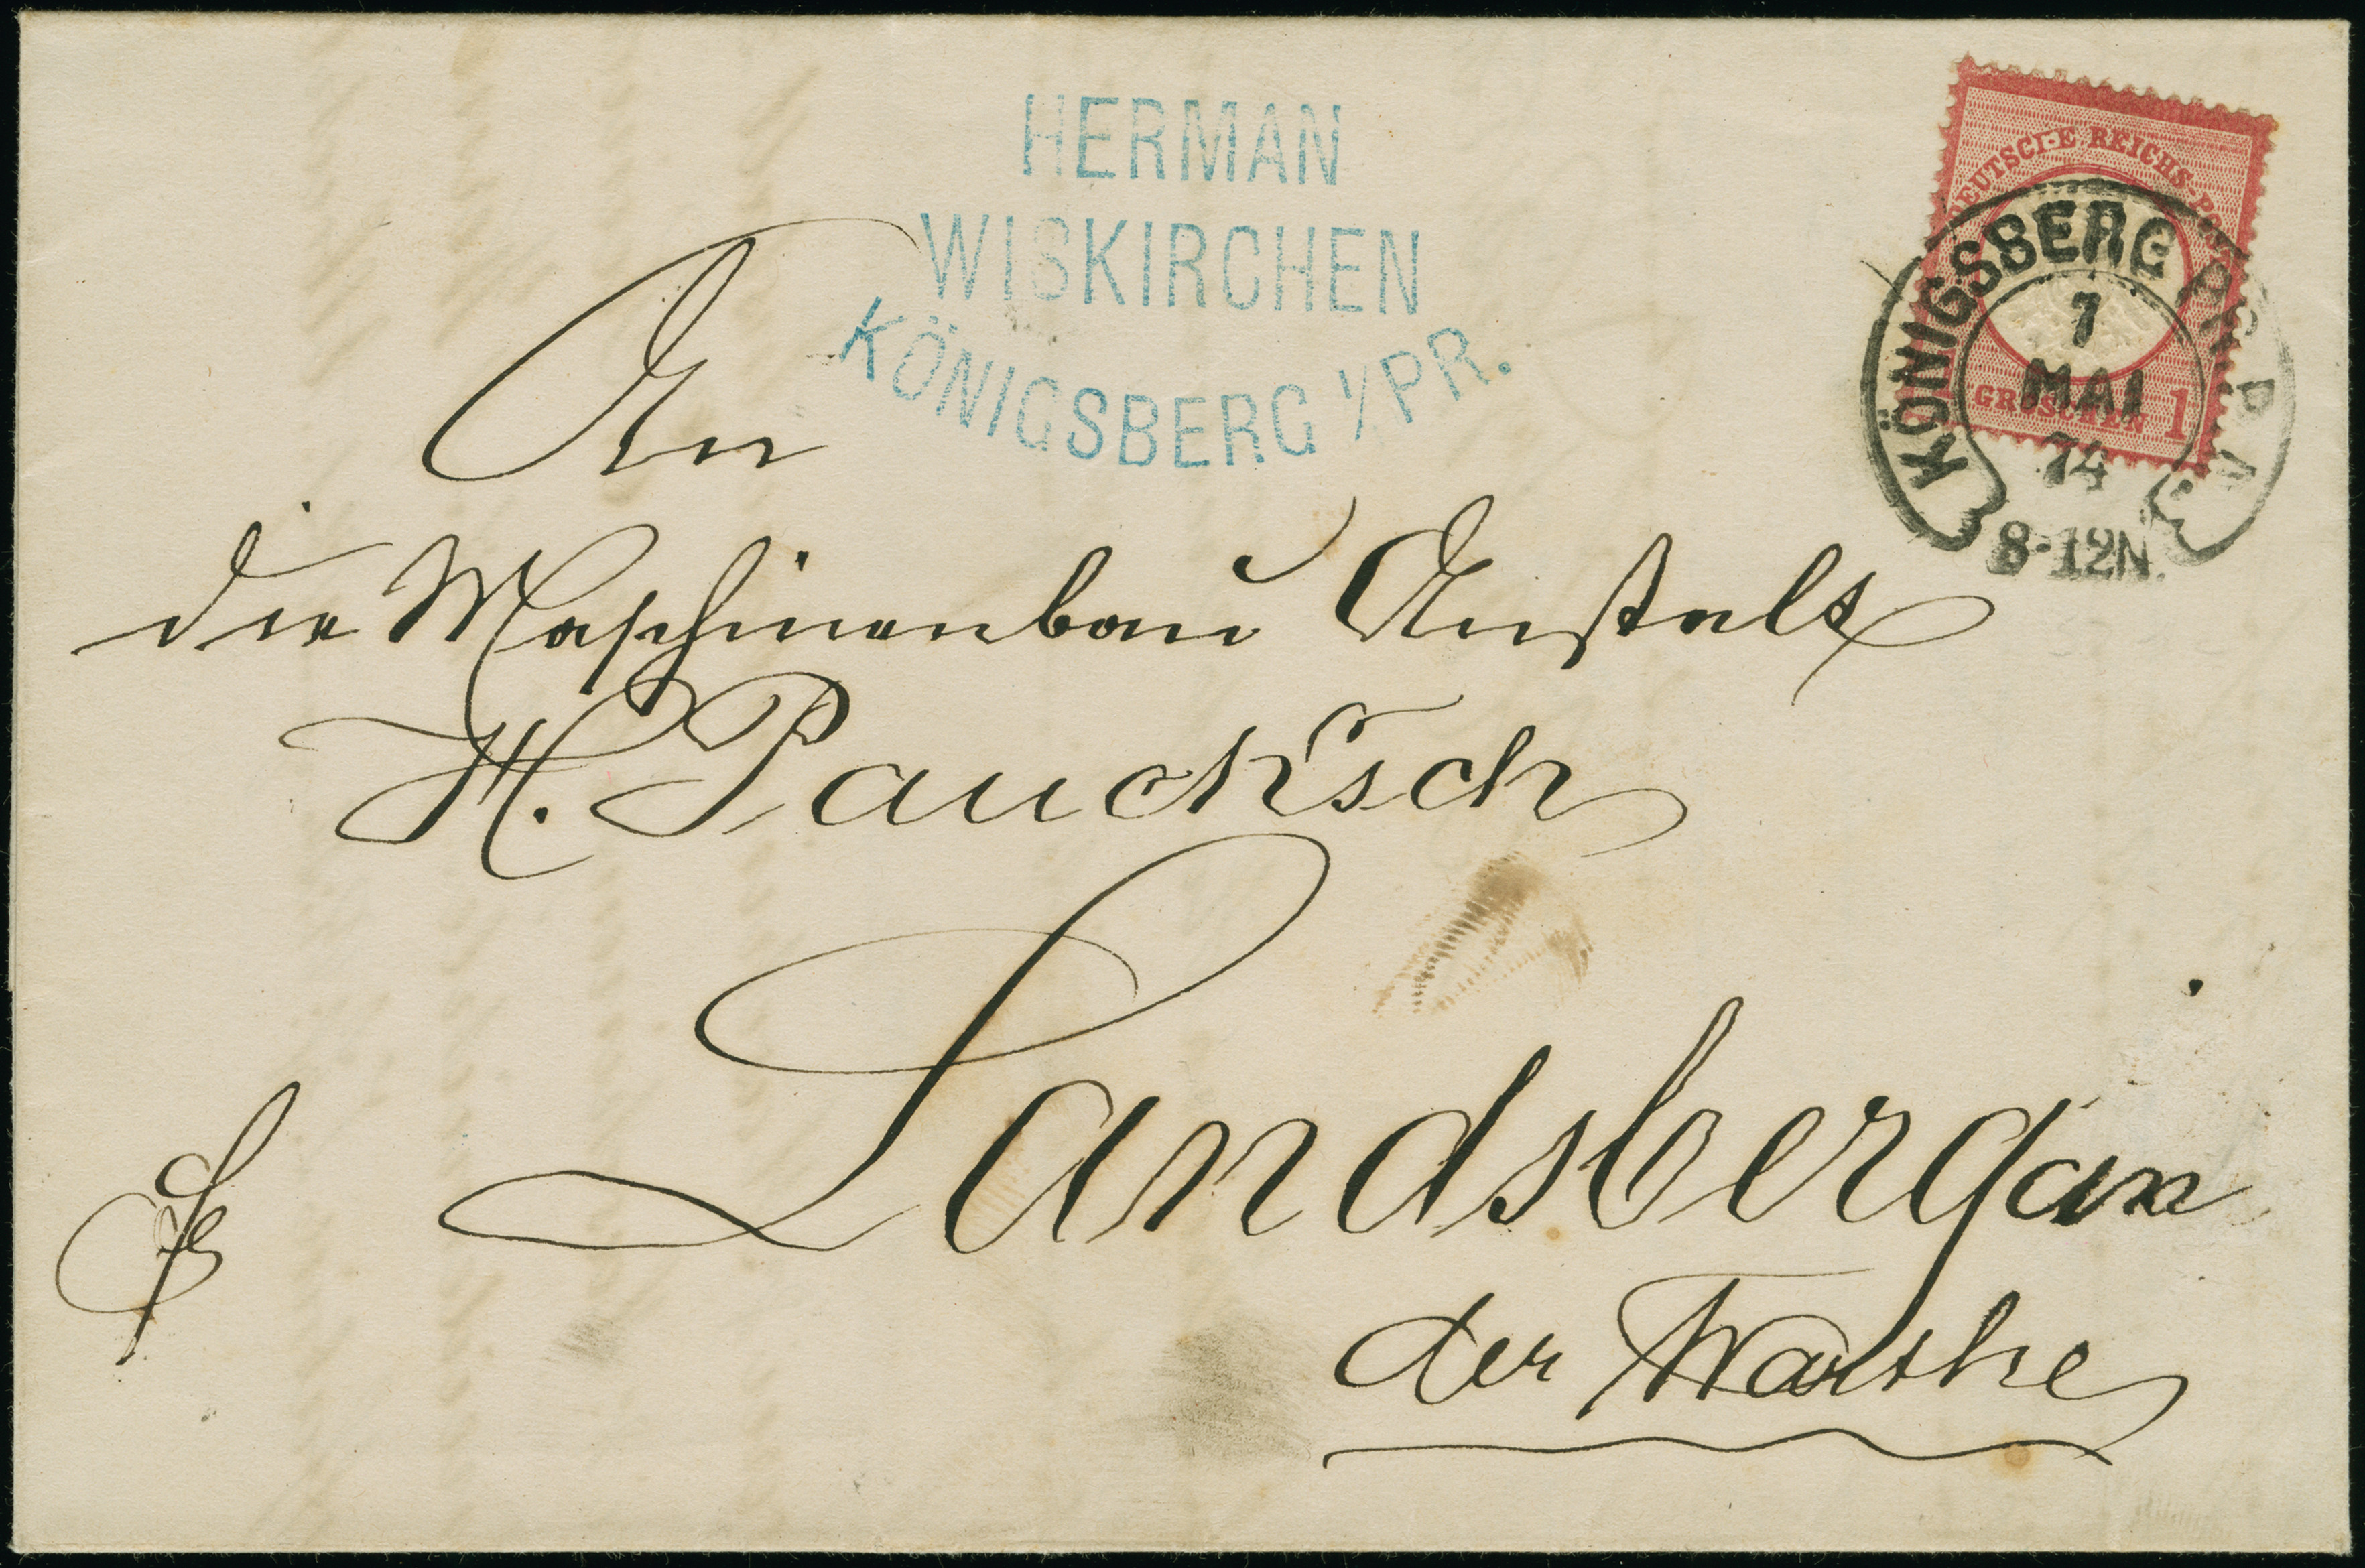 HERMAN
WISKIRCHEN
KÖNIGSBERG I/PR.
DEUTSCHE REICHS-POST
GROSCHEN 1
KÖNIGSBERG PR. P.A.
7
MAI
74
8-12N.
An
die Maschinenbau Anstalt
H. Paucksch
Landsberg an
der Warthe